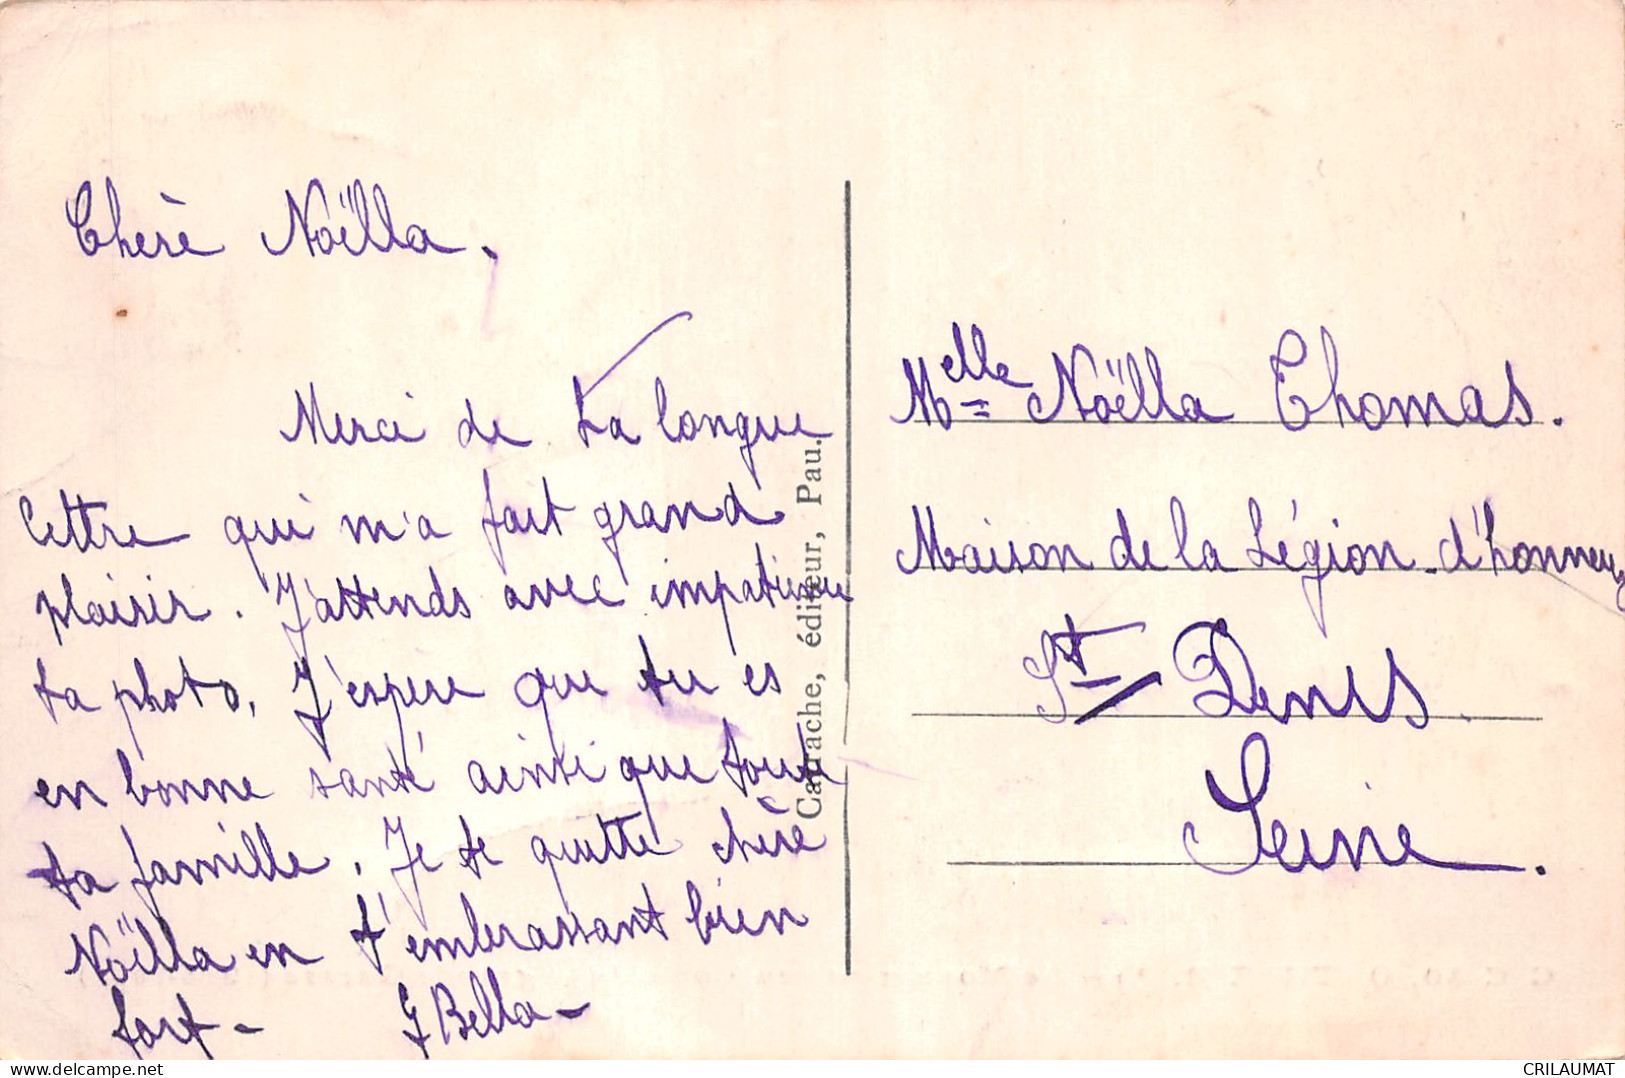 Chèrè Noëlla.
Merci de ta longue
lettre qui m'a fait grand
plaisir. J'attends avec impatience
ta photo. J'espère que tu es
en bonne santé ainsi que toute
ta famille. Je te quitte chère
Noëlla en t'embrassant bien
fort - J Bella -
Catrache, éditeur, Pau.
Melle Noëlla Thomas.
Maison de la Légion d'honneur
St Denis
Seine.
CRILAUMAT